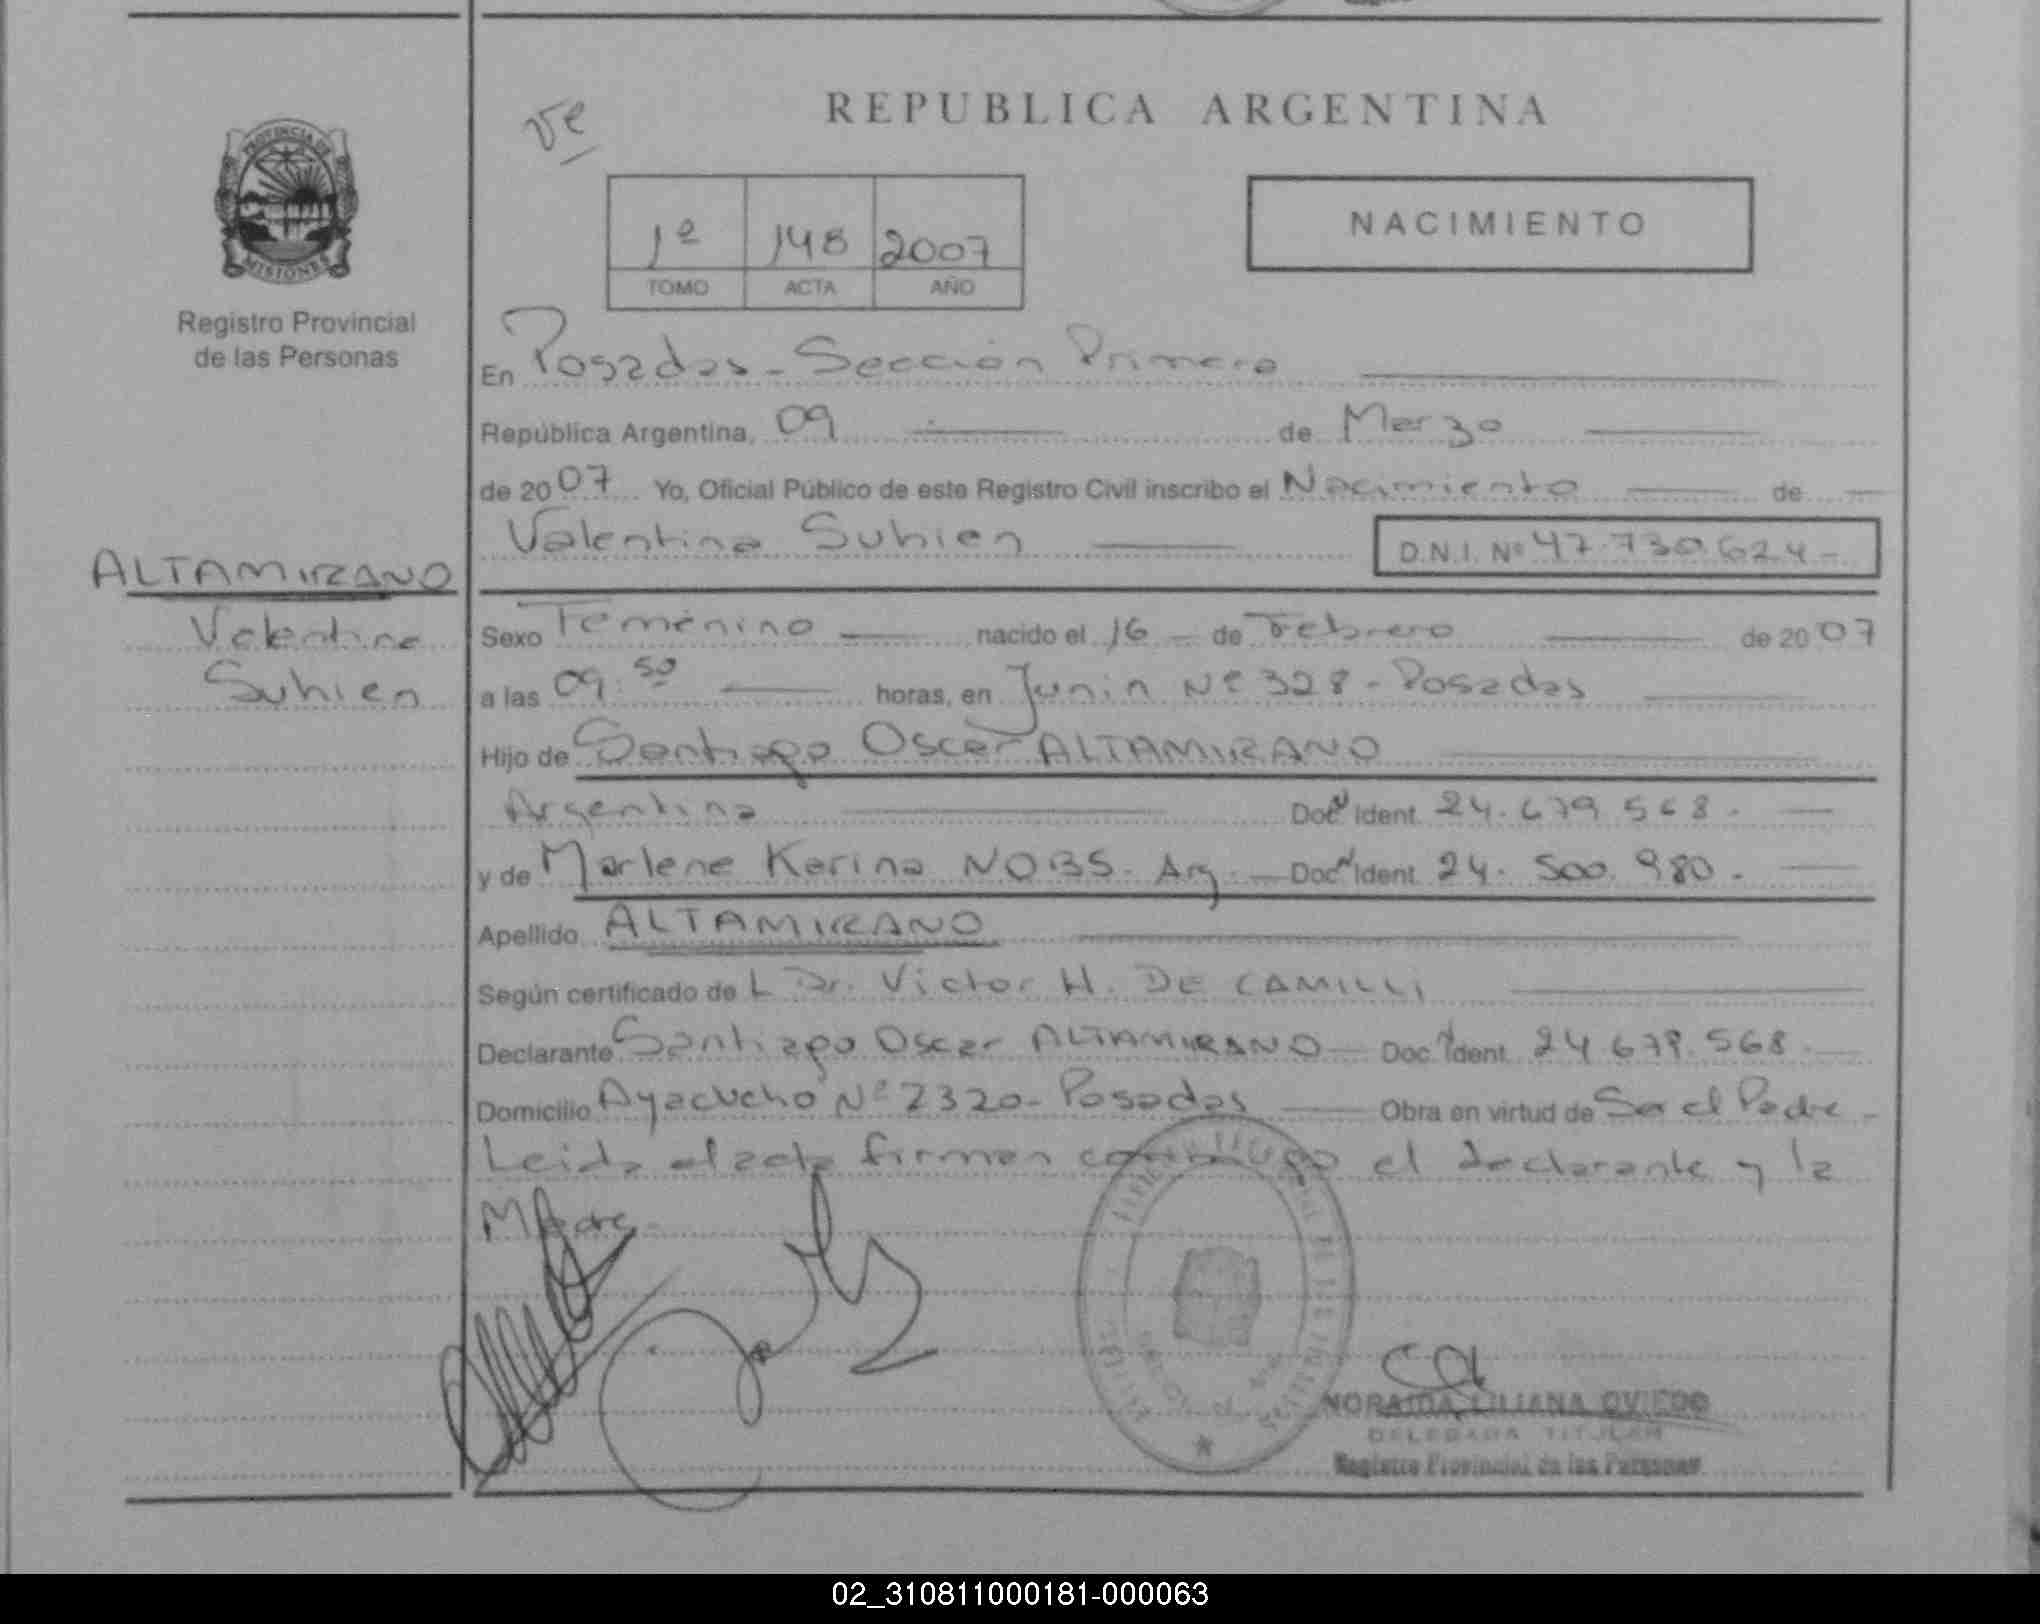 REPUBLICA ARGENTINA
Ve
PROVINCIA DE
MISIONES
Registro Provincial
de las Personas
1º 148 2007
TOMO ACTA AÑO
NACIMIENTO
En Posadas - Sección Primera
República Argentina, 09 de Marzo
de 2007 Yo, Oficial Público de este Registro Civil inscribo el Nacimiento de
Valentina Suhien D.N.I. Nº 47.730.624-
ALTAMIRANO
Valentina
Suhien
Sexo Femenino nacido el 16 de Febrero de 2007
a las 09:50 horas, en Junín Nº 328 - Posadas
Hijo de Santiago Oscar ALTAMIRANO
Argentina Doc. Ident. 24.679.568.
y de Marlene Karina NOBS. Arg. Doc. Ident. 24.500.980.
Apellido ALTAMIRANO
Según certificado de L Dr. Victor H. DE CAMILLI
Declarante Santiago Oscar ALTAMIRANO Doc. Ident. 24.679.568.
Domicilio Ayacucho Nº 2320 - Posadas Obra en virtud de Ser el Padre -
Leida el acta firman conmigo el declarante y la
Madre -
NORAIDA LILIANA OVIEDO
DELEGADA TITULAR
Registro Provincial de las Personas
02_310811000181-000063